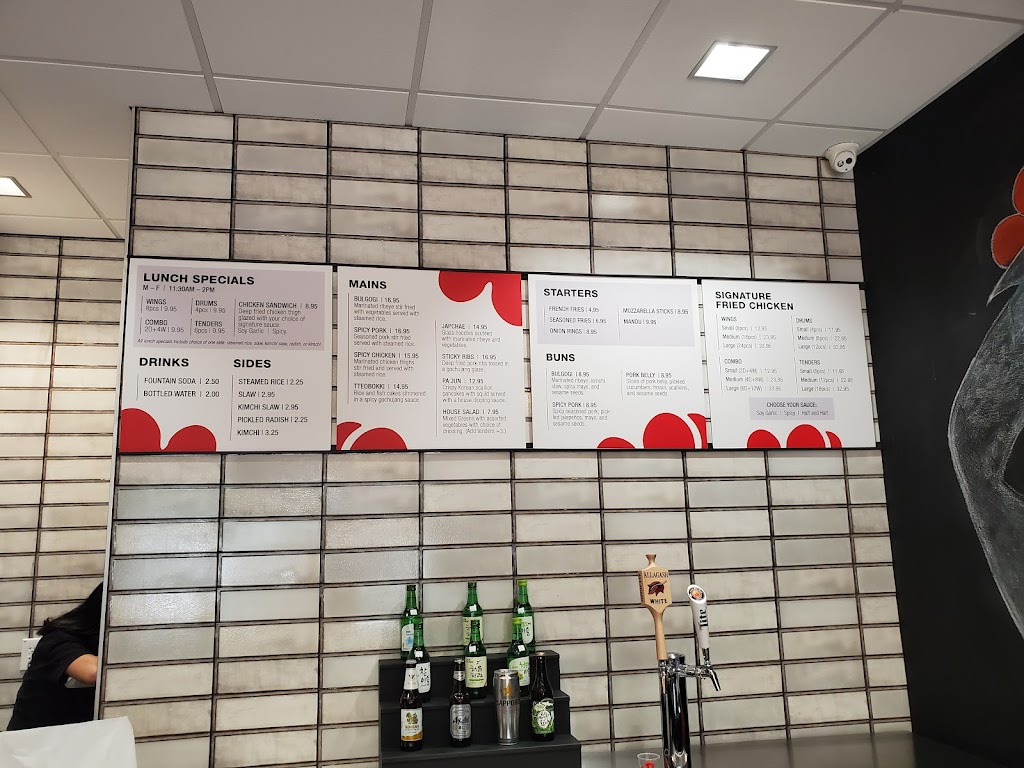 LUNCH SPECIALS
M – F | 11:30AM – 2PM
WINGS
8pcs | 9.95
COMBO
2D+4W | 9.95
DRUMS
4pcs | 9.95
TENDERS
5pcs | 9.95
CHICKEN SANDWICH | 8.95
Deep fried chicken thigh
glazed with your choice of
signature sauce:
Soy Garlic | Spicy
DRINKS
FOUNTAIN SODA | 2.50
BOTTLED WATER | 2.00
SIDES
STEAMED RICE | 2.25
SLAW | 2.95
KIMCHI SLAW | 2.95
PICKLED RADISH | 2.25
KIMCHI | 3.25
MAINS
BULGOGI | 16.95
Marinated ribeye stir fried
with vegetables served with
steamed rice.
SPICY PORK | 16.95
Seasoned pork stir fried
served with steamed rice.
SPICY CHICKEN | 15.95
Marinated chicken thighs
stir fried and served with
steamed rice.
TTEOBOKKI | 14.95
Rice and fish cakes simmered
in a spicy gochujang sauce.
JAPCHAE | 14.95
Glass noodles sautéed
with marinated ribeye and
vegetables.
STICKY RIBS | 16.95
Deep fried pork ribs tossed in
a gochujang glaze.
PAJUN | 12.95
Crispy Korean scallion
pancakes with squid served
with a house dipping sauce.
HOUSE SALAD | 7.95
Mixed Greens with assorted
vegetables with choice of
dressing. (Add tenders +3.)
STARTERS
FRENCH FRIES | 4.95
SEASONED FRIES | 6.95
ONION RINGS | 8.95
MOZZARELLA STICKS | 8.95
MANDU | 9.95
BUNS
BULGOGI | 8.95
Marinated ribeye, kimchi
slaw, spicy mayo, and
sesame seeds.
SPICY PORK | 8.95
Spicy seasoned pork, pick-
led jalapeños, mayo, and
sesame seeds.
PORK BELLY | 8.95
Slices of pork belly, pickled
cucumbers, hoisin, scallions,
and sesame seeds.
SIGNATURE
FRIED CHICKEN
WINGS
Small (8pcs) | 12.95
Medium (16pcs) | 23.95
Large (24pcs) | 33.95
DRUMS
Small (4pcs) | 11.95
Medium (8pcs) | 22.95
Large (12pcs) | 32.95
COMBO
Small (2D+4W) | 12.95
Medium (4D+8W) | 23.95
Large (6D+12W) | 33.95
TENDERS
Small (6pcs) | 11.95
Medium (12pcs) | 22.95
Large (18pcs) | 32.95
CHOOSE YOUR SAUCE:
Soy Garlic | Spicy | Half and Half
ALLAGASH
WHITE
SAPPORO
Asahi